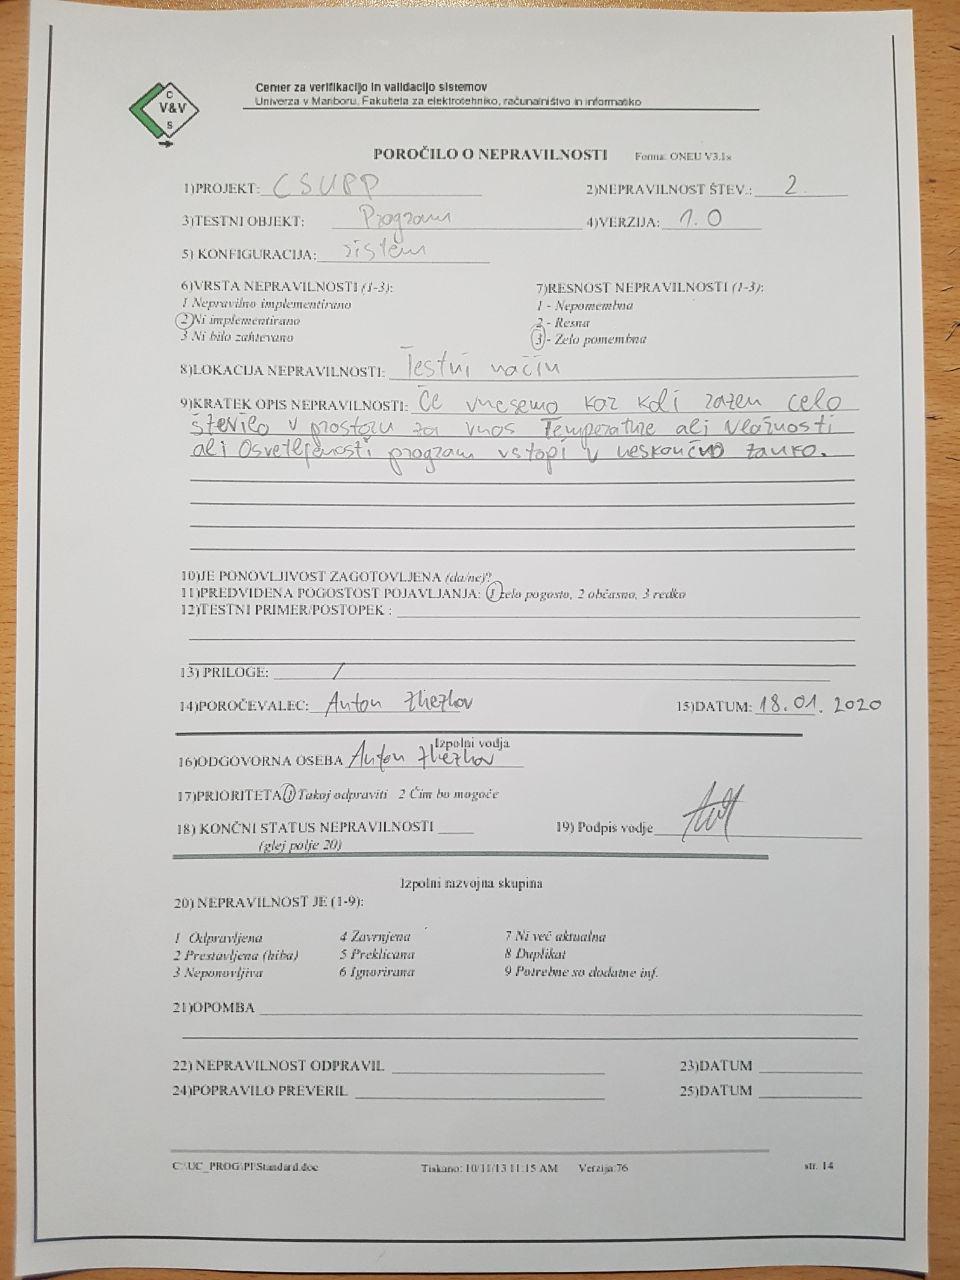 C
V&V
S
Center za verifikacijo in validacijo sistemov
Univerza v Mariboru, Fakulteta za elektrotehniko, računalništvo in informatiko
POROČILO O NEPRAVILNOSTI Forma: ONEU V3.1s
1)PROJEKT: CSUPP 2)NEPRAVILNOST ŠTEV.: 2
3)TESTNI OBJEKT: Program 4)VERZIJA: 1.0
5) KONFIGURACIJA: sistem
6)VRSTA NEPRAVILNOSTI (1-3): 7)RESNOST NEPRAVILNOSTI (1-3):
1 Nepravilno implementirano 1 - Nepomembna
2 Ni implementirano 2 - Resna
3 Ni bilo zahtevano 3 - Zelo pomembna
8)LOKACIJA NEPRAVILNOSTI: Testni način
9)KRATEK OPIS NEPRAVILNOSTI: Če vnesemo kar koli razen celo
število v prostoru za vnos Temperature ali Vlažnosti
ali Osvetljenosti program vstopi v neskončno zanko.
10)JE PONOVLJIVOST ZAGOTOVLJENA (da/ne)?
11)PREDVIDENA POGOSTOST POJAVLJANJA: 1 zelo pogosto, 2 občasno, 3 redko
12)TESTNI PRIMER/POSTOPEK :
13) PRILOGE: /
14)POROČEVALEC: Anton 15)DATUM: 18.01.2020
Izpolni vodja
16)ODGOVORNA OSEBA Anton
17)PRIORITETA 1 Takoj odpraviti 2 Čim bo mogoče
18) KONČNI STATUS NEPRAVILNOSTI 19) Podpis vodje
(glej polje 20)
Izpolni razvojna skupina
20) NEPRAVILNOST JE (1-9):
1 Odpravljena 4 Zavrnjena 7 Ni več aktualna
2 Prestavljena (hiba) 5 Preklicana 8 Duplikat
3 Neponovljiva 6 Ignorirana 9 Potrebne so dodatne inf.
21)OPOMBA
22) NEPRAVILNOST ODPRAVIL 23)DATUM
24)POPRAVILO PREVERIL 25)DATUM
C:\UC_PROG\PI\Standard.doc Tiskano: 10/11/13 11:15 AM Verzija:76 str. 14